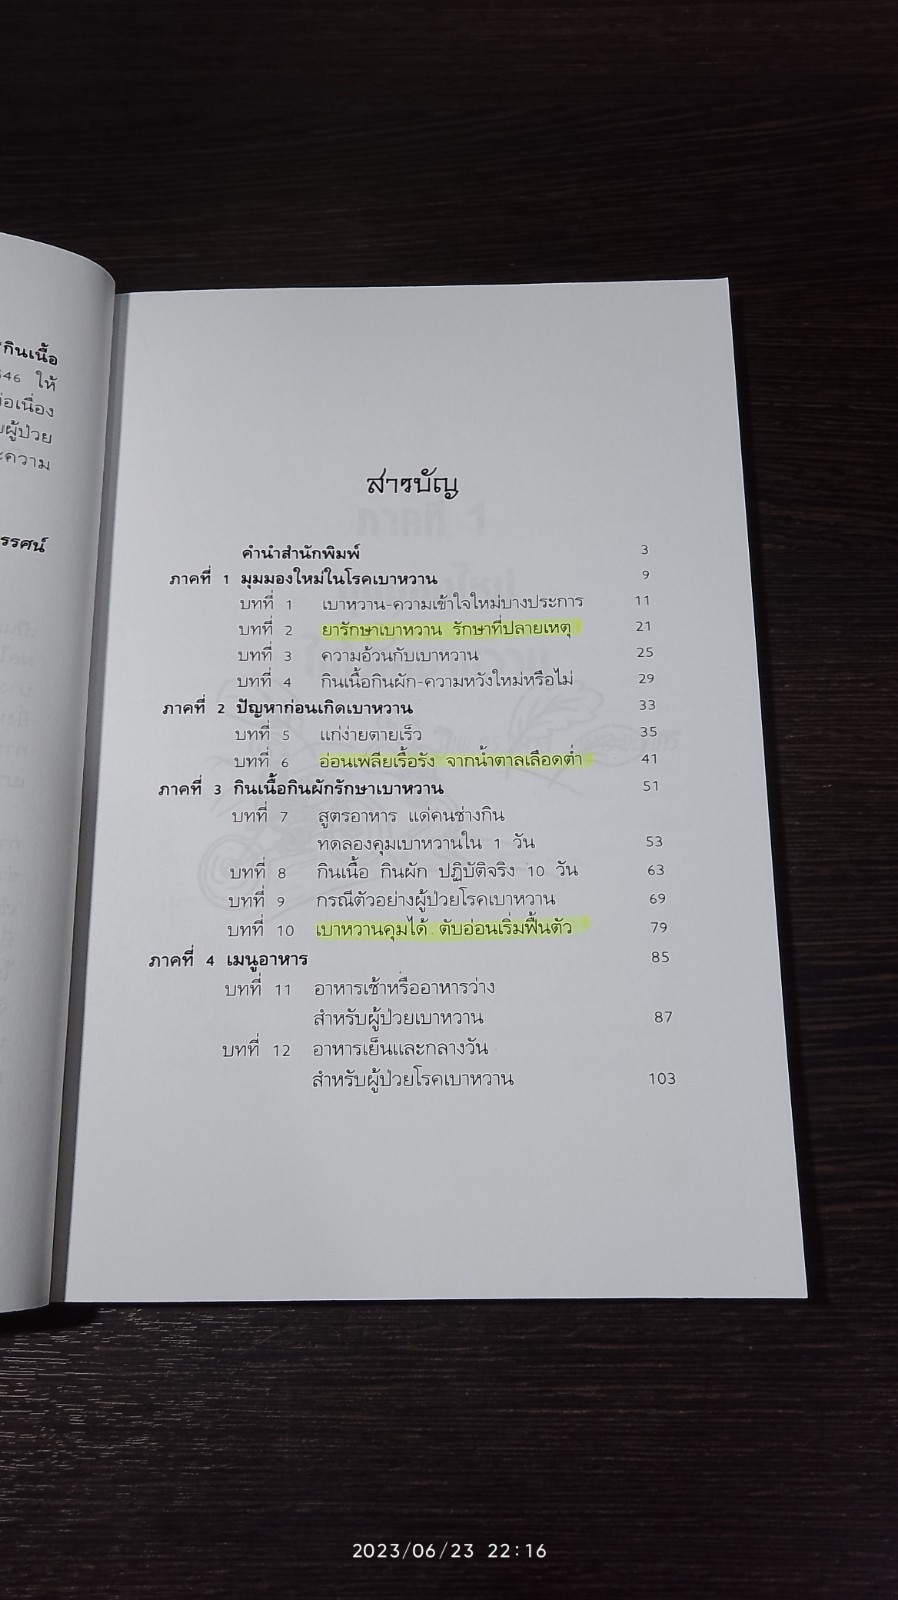 กินเนื้อ
546 ให้
ผู้ป่วย
ความ
สารบัญ
คำนำสำนักพิมพ์ 3
ภาคที่ 1 มุมมองใหม่ในโรคเบาหวาน 9
บทที่ 1 เบาหวาน-ความเข้าใจใหม่บางประการ 11
บทที่ 2 ยารักษาเบาหวาน รักษาที่ปลายเหตุ 21
บทที่ 3 ความอ้วนกับเบาหวาน 25
บทที่ 4 กินเนื้อกินผัก-ความหวังใหม่หรือไม่ 29
ภาคที่ 2 ปัญหาก่อนเกิดเบาหวาน 33
บทที่ 5 แก่ง่ายตายเร็ว 35
บทที่ 6 อ่อนเพลียเรื้อรัง จากน้ำตาลเลือดต่ำ 41
ภาคที่ 3 กินเนื้อกินผักรักษาเบาหวาน 51
บทที่ 7 สูตรอาหาร แด่คนช่างกิน
ทดลองคุมเบาหวานใน 1 วัน 53
บทที่ 8 กินเนื้อ กินผัก ปฏิบัติจริง 10 วัน 63
บทที่ 9 กรณีตัวอย่างผู้ป่วยโรคเบาหวาน 69
บทที่ 10 เบาหวานคุมได้ ตับอ่อนเริ่มฟื้นตัว 79
ภาคที่ 4 เมนูอาหาร 85
บทที่ 11 อาหารเช้าหรืออาหารว่าง
สำหรับผู้ป่วยเบาหวาน 87
บทที่ 12 อาหารเย็นและกลางวัน
สำหรับผู้ป่วยโรคเบาหวาน 103
2023/06/23 22:16